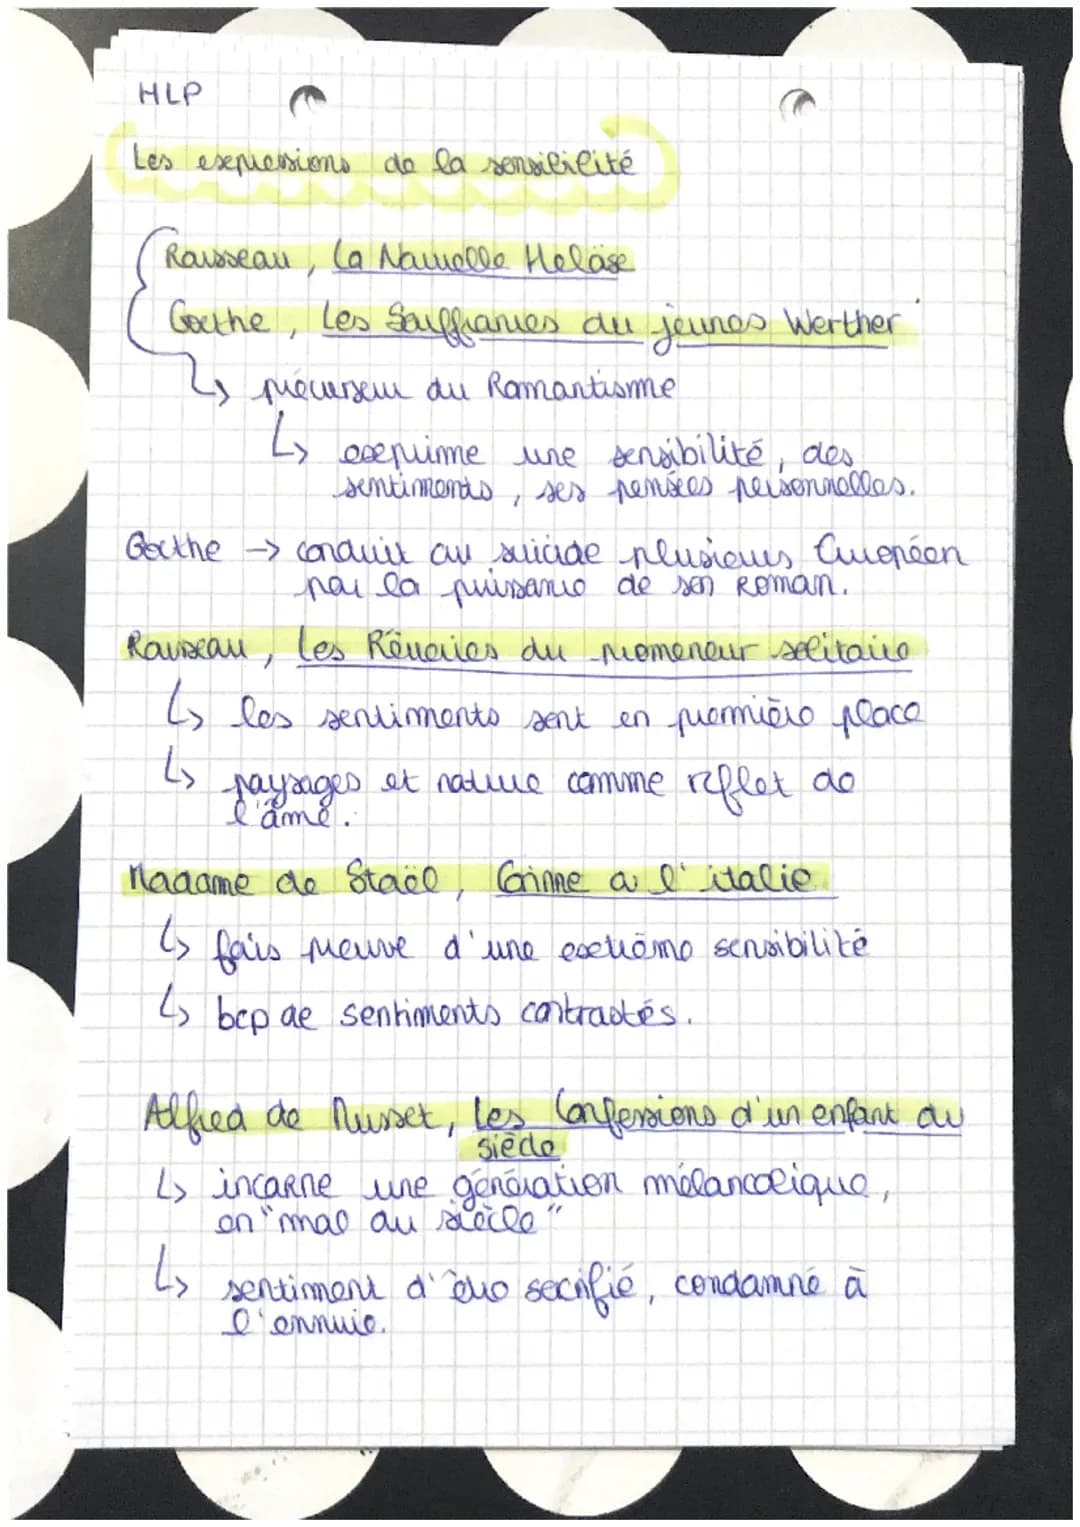 HLP
Les expressions de la sensibilité
Rousseau, La Nouvelle Heloïse
Goethe, Les Souffrances du jeunes Werther
↳ précurseur du Romantisme
↳ exprime une sensibilité, des
sentiments, ses pensées personnelles.
Goethe → conduit au suicide plusieurs Européen
par la puissance de son Roman.
Rousseau, Les Rêveries du promeneur solitaire
↳ les sentiments sont en première place
↳ paysages et nature comme reflet de
l'âme.
Madame de Staël, Corinne ou l'italie
↳ fais preuve d'une extrême sensibilité
↳ bcp de sentiments contrastés.
Alfred de Musset, Les Confessions d'un enfant du
siècle
↳ incarne une génération mélancolique,
en "mal du siècle"
↳ sentiment d'être sacrifié, condamné à
l'ennuie.